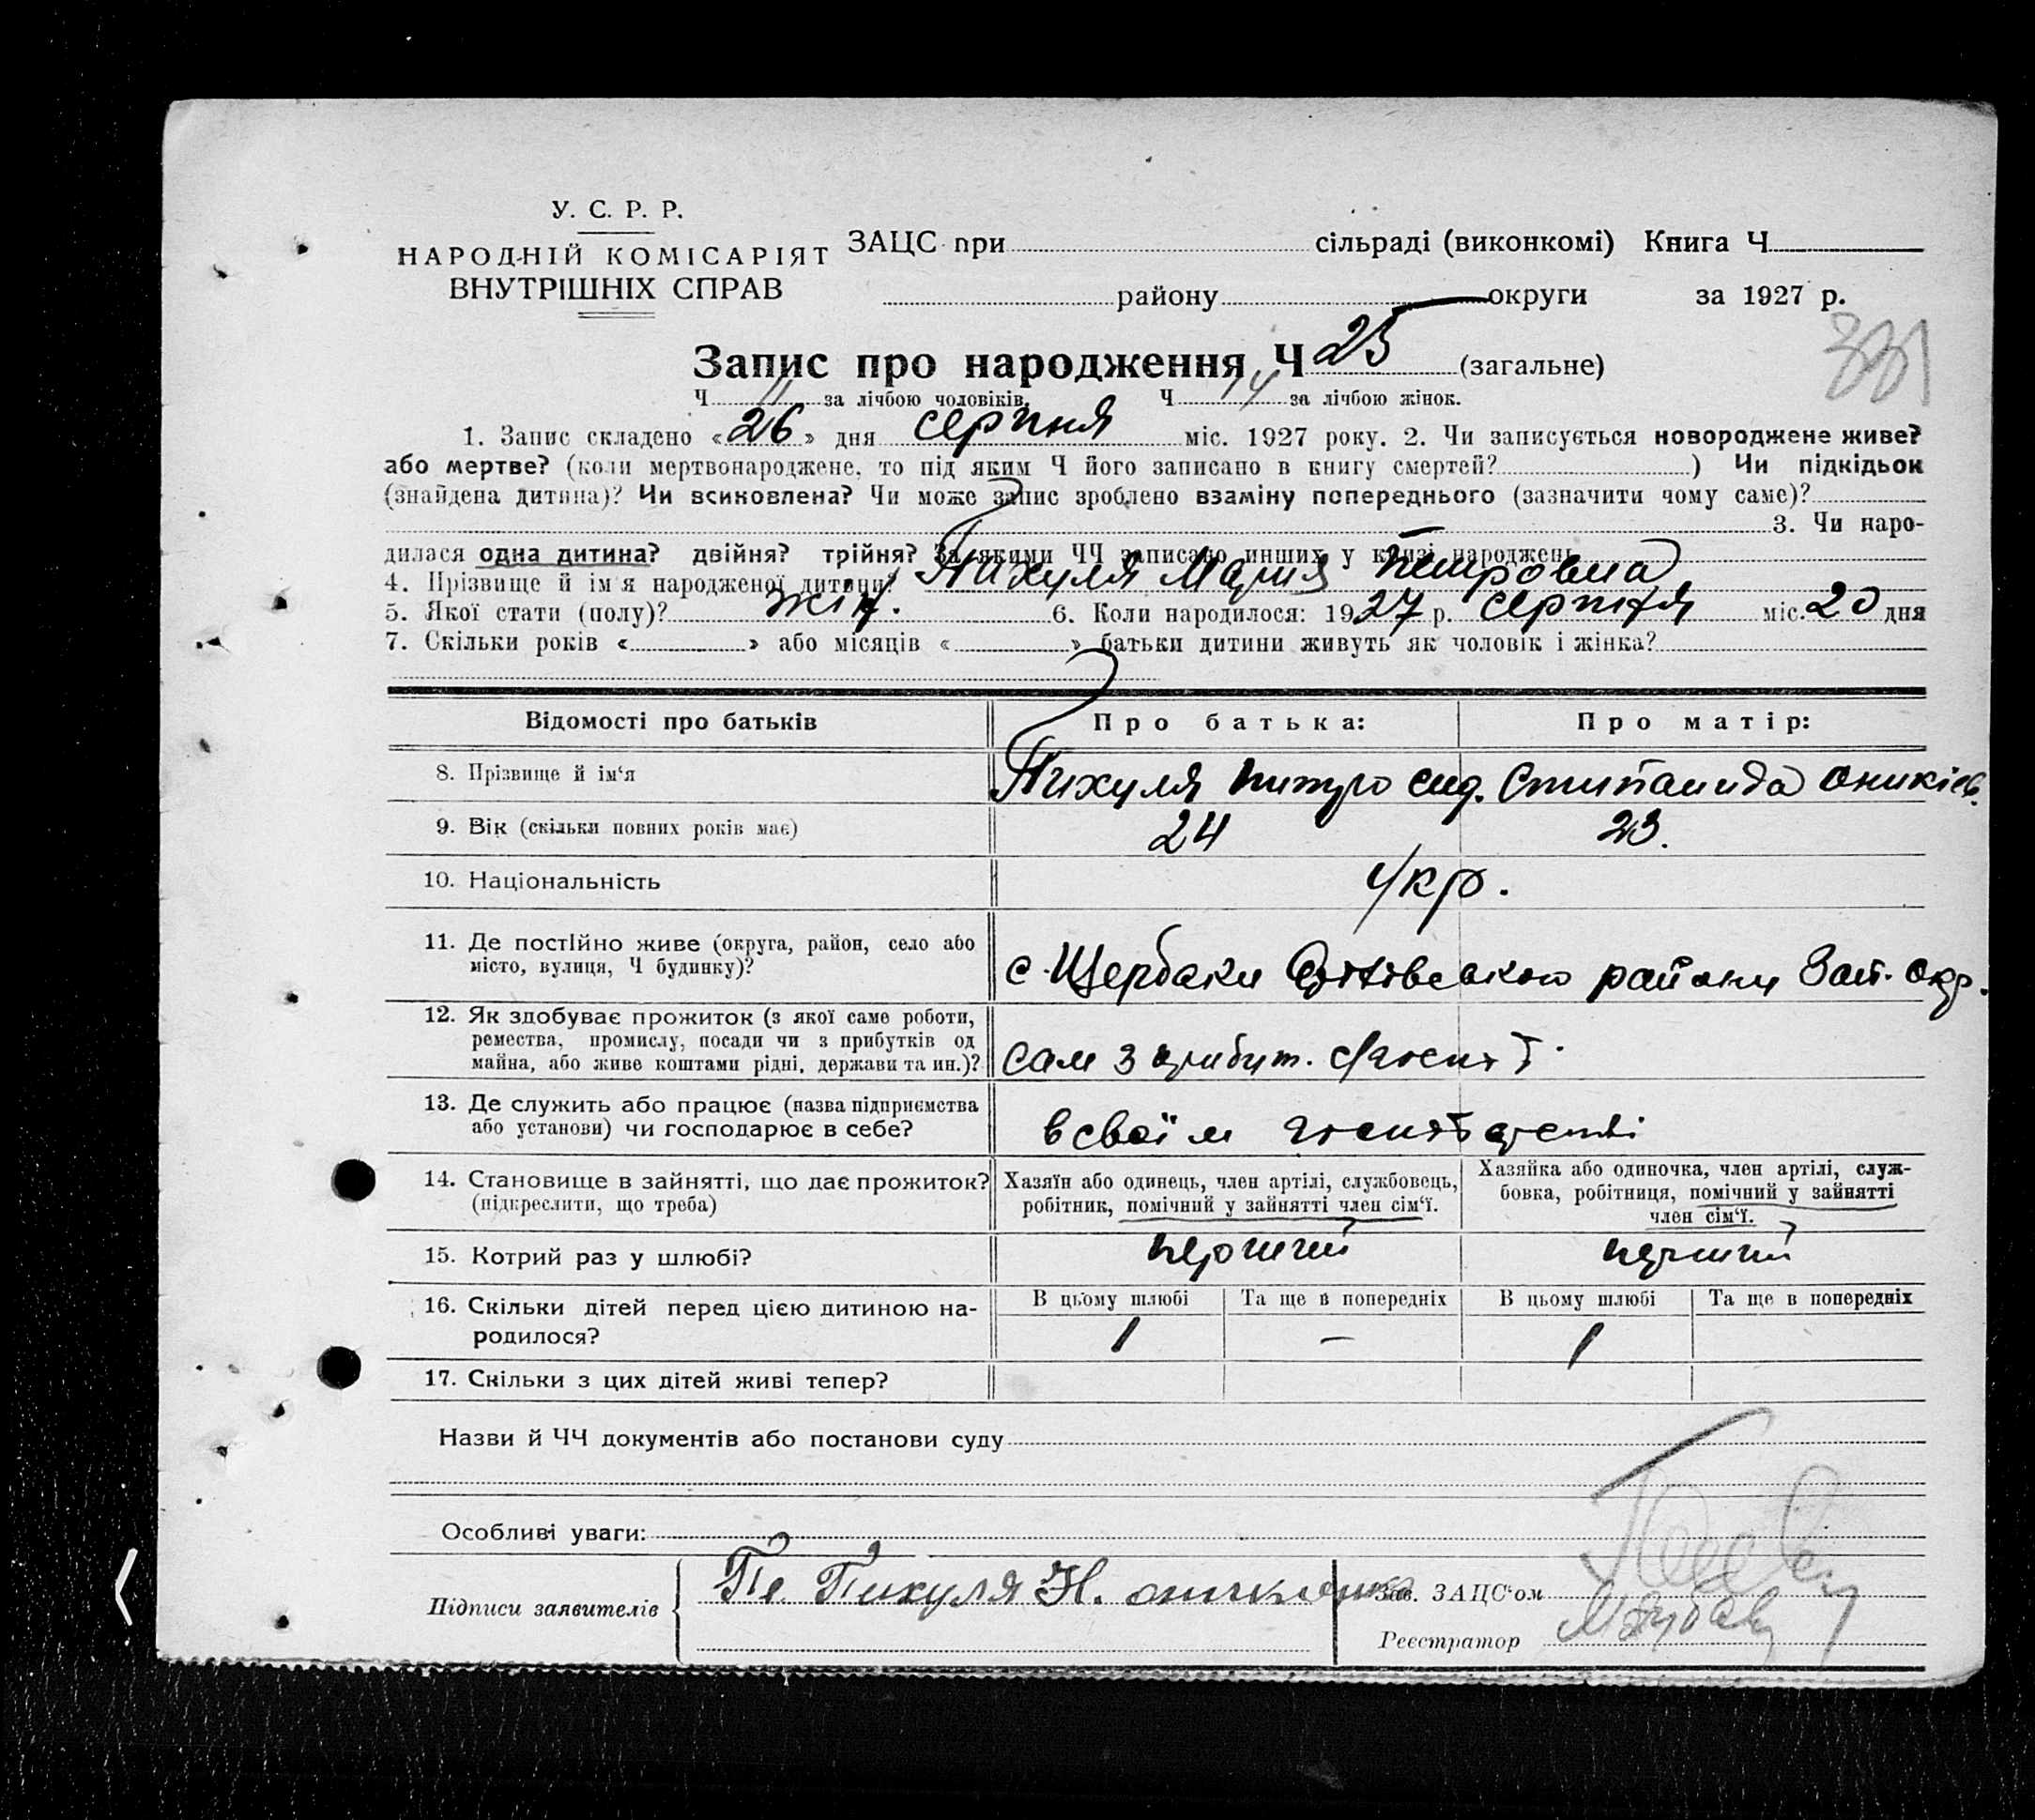 У. С. Р. Р.
НАРОДНІЙ КОМІСАРІЯТ
ВНУТРІШНІХ СПРАВ
ЗАЦС при сільраді (виконкомі) Книга Ч.
району округи за 1927 р.
Запис про народження Ч 25 (загальне)
Ч 11 за лічбою чоловіків. Ч 14 за лічбою жінок.
1. Запис складено «26» дня серпня міс. 1927 року. 2. Чи записується новороджене живе?
або мертве? (коли мертвонароджене, то під яким Ч його записано в книгу смертей?) Чи підкідьок
(знайдена дитина)? Чи всиновлена? Чи може запис зроблено взаміну попереднього (зазначити чому саме)?
3. Чи наро-
дилася одна дитина? двійня? трійня? За якими ЧЧ записано инших у книзі народжень
4. Прізвище й ім'я народженої дитини? Пихуля Мария Петровна
5. Якої стати (полу)? жін. 6. Коли народилося: 1927 р. серпня міс. 20 дня
7. Скільки років « » або місяців « » батьки дитини живуть як чоловік і жінка?
Відомості про батьків Про батька: Про матір:
8. Прізвище й ім'я Пихуля Питро сид. Стипанида Оникіев.
9. Вік (скільки повних років має) 24 23.
10. Національність Укр.
11. Де постійно живе (округа, район, село або
місто, вулиця, Ч будинку)? с. Щербаки району Зап. окр.
12. Як здобуває прожиток (з якої саме роботи,
ремества, промислу, посади чи з прибутків од
майна, або живе коштами рідні, держави та ин.)? сам з
13. Де служить або працює (назва підприємства
або установи) чи господарює в себе? в своїм
14. Становище в зайнятті, що дає прожиток?
(підкреслити, що треба)
Хазяїн або одинець, член артілі, службовець,
робітник, помічний у зайнятті член сім'ї.
Хазяйка або одиночка, член артілі, служ-
бовка, робітниця, помічний у зайнятті
член сім'ї.
15. Котрий раз у шлюбі? перший перший
16. Скільки дітей перед цією дитиною на-
родилося?
В цьому шлюбі Та ще в попередніх В цьому шлюбі Та ще в попередніх
1 — 1
17. Скільки з цих дітей живі тепер?
Назви й ЧЧ документів або постанови суду
Особливі уваги:
Підписи заявителів Пихуля Н.
Зав. ЗАЦС'ом
Реєстратор